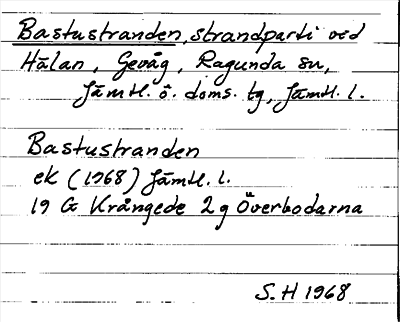 Bastustranden, strandparti ved
Hålan, Gevåg, Ragunda sn,
Jämtl. ö. doms. tg, Jämtl. l.
Bastustranden
ek (1968) Jämtl. l.
19 G Krångede 2 g Överbodarna
S. H 1968